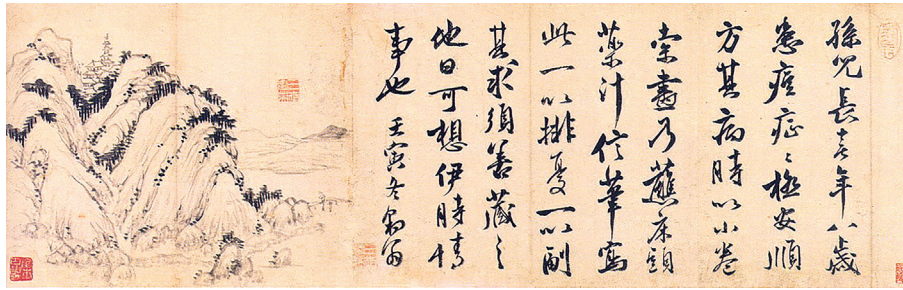 孫兒長喜年八歲
患痘症〻極安順
方其病時以小卷
索畫乃蘸床頭
藥汁信筆寫
此一以排憂一以副
其求須善藏之
他日可想伊時情
事也 壬寅冬